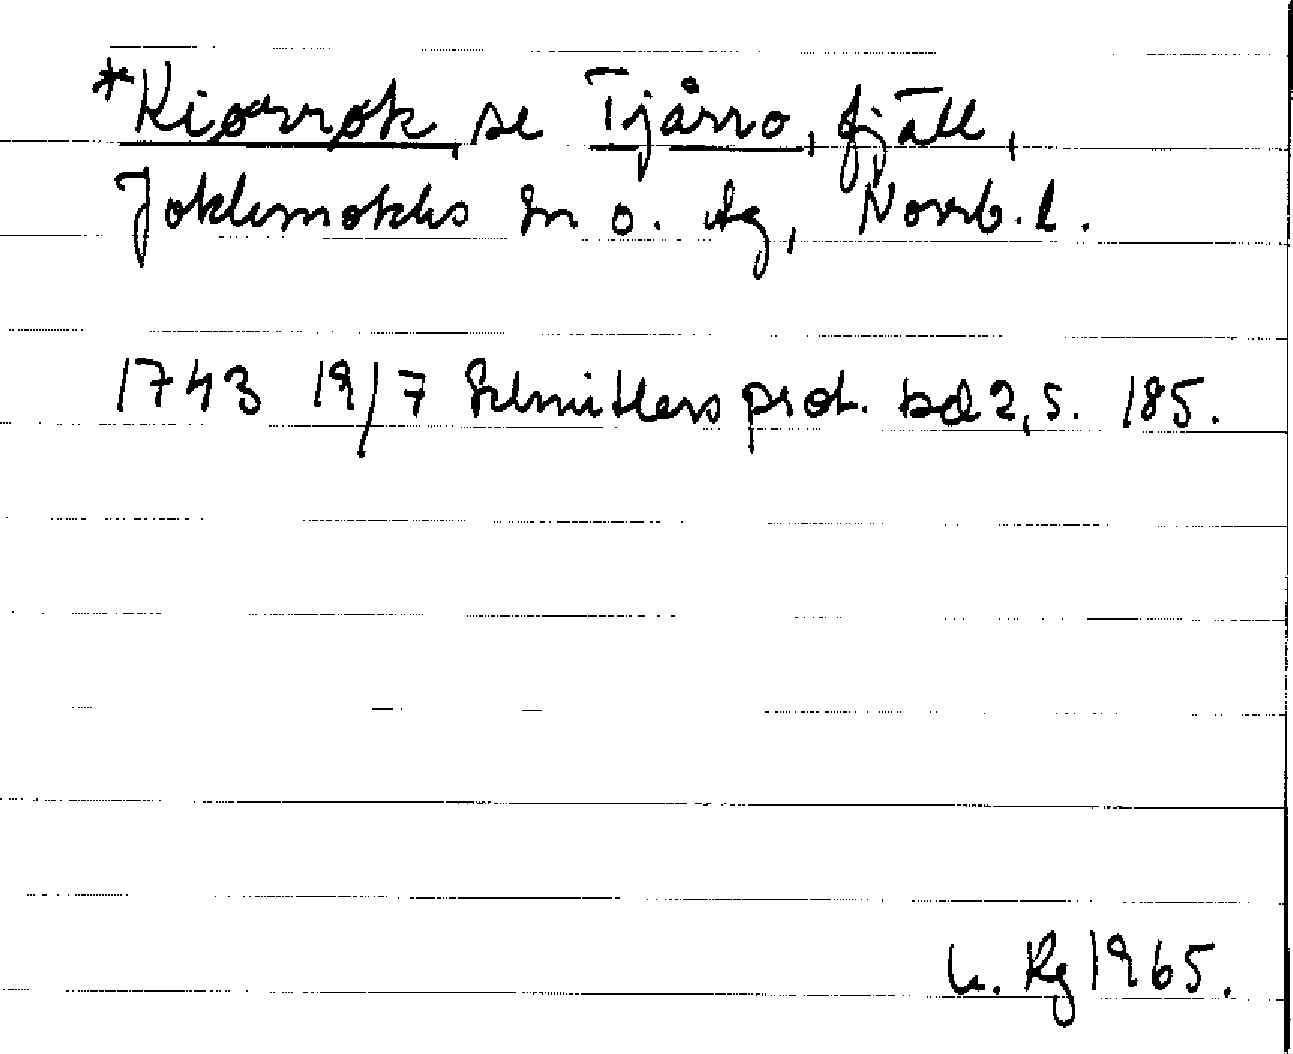 *Kiørrøk, se Tjårro, fjäll,
Jokkmokks sn o. tg, Norrb. l.
1743 19/7 Schnitlers prot. bd 2, s. 185.
Rg 1965.